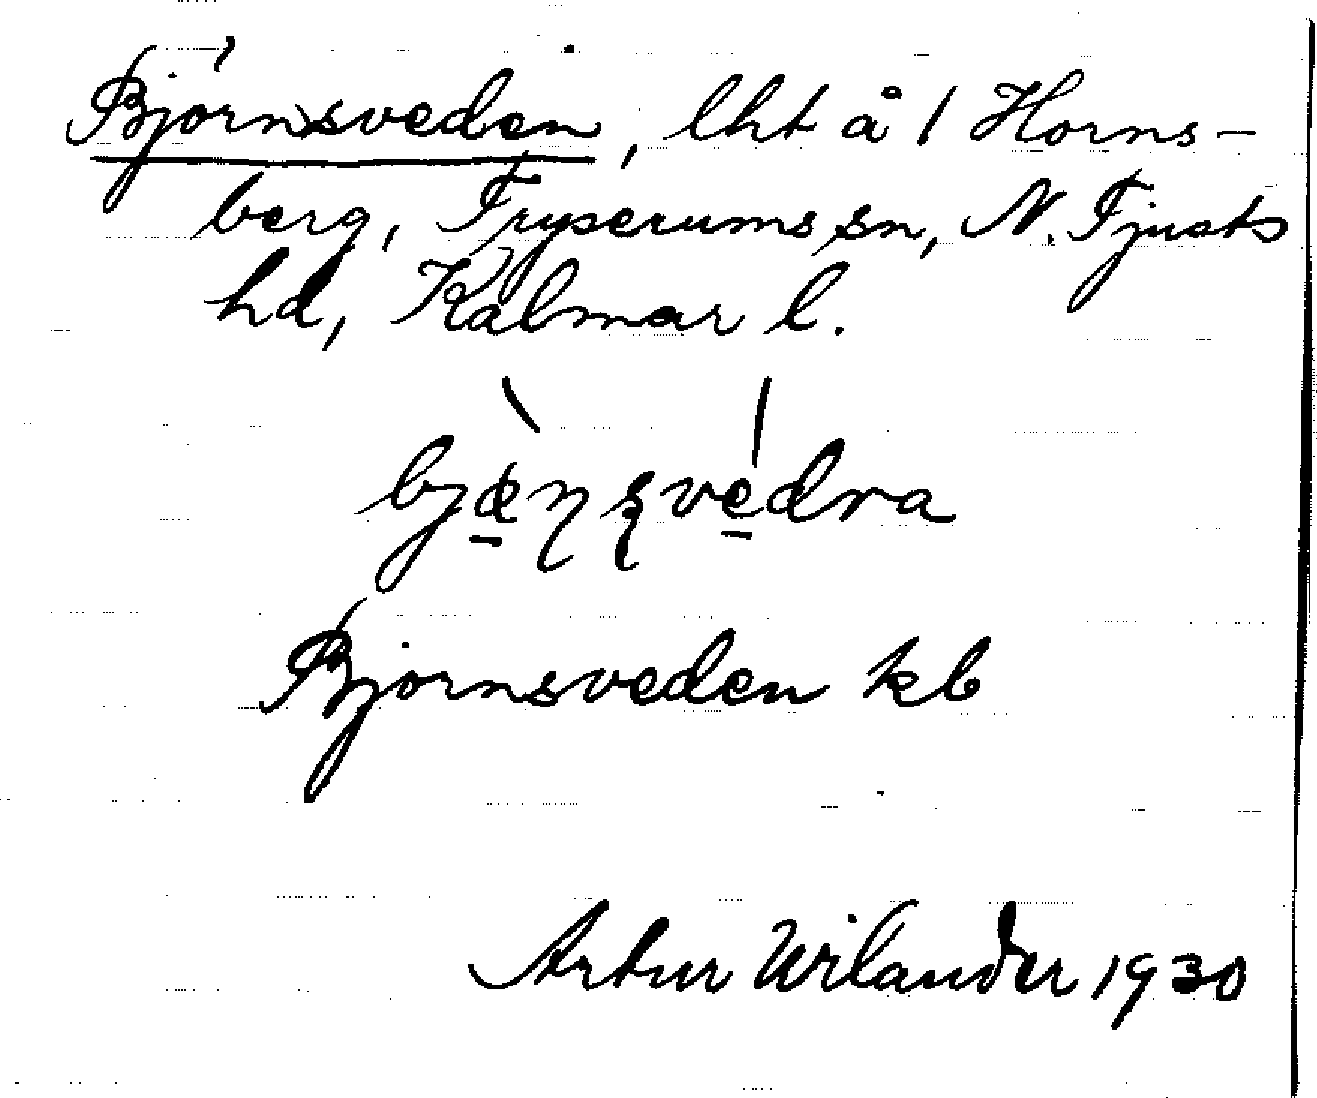 Björnsveden, lht å 1 Horns-
berg, Tryserums sn, N. Tjusts
hd, Kalmar l.
Björnsveden kb
Artur Wilander 1930